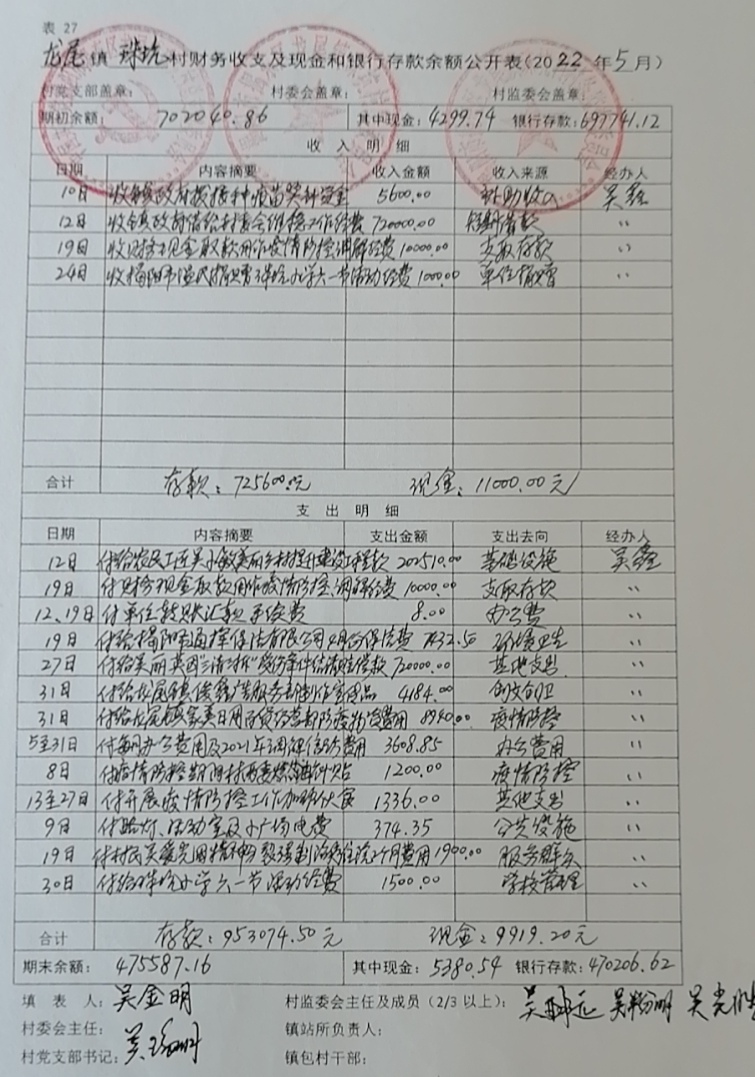 表 27
龙尾镇 珠坑村财务收支及现金和银行存款余额公开表(2022年5月)
村党支部盖章： 村委会盖章： 村监委会盖章：
期初余额： 702040.86 其中现金：4299.74 银行存款：697741.12
收 入 明 细
日期 内容摘要 收入金额 收入来源 经办人
10日 收镇政府拨接种疫苗奖补资金 5600.00 补助收入 吴鑫
12日 收镇政府借给村委会维稳工作经费 720000.00 短期借款 〃
19日 收财务现金取款用作疫情防控、调解经费 10000.00 支取存款 〃
24日 收揭阳市 捐赠珠坑小学六一节活动经费 1000.00 单位捐赠 〃
合计 存款：725600元 现金：11000.00元
支 出 明 细
日期 内容摘要 支出金额 支出去向 经办人
12日 付给农民工 吴小敏美丽乡村 建设工程款 202510.00 基础设施 吴鑫
19日 付财务现金取款用作疫情防控、调解经费 10000.00 支取存款 〃
12、19日 付单位转账汇款手续费 8.00 办公费 〃
19日 付给揭阳 海 保洁有限公司4月份保洁费 7432.50 环境卫生 〃
27日 付给吴丽英因三清 款 720000.00 其他支出 〃
31日 付给龙尾镇 广告服务部制作宣 品 4184.00 创文创卫 〃
31日 付给龙尾镇 美日用百货经营部防疫物资费用 8940.00 疫情防控 〃
5至31日 付每月办公费用及2021年调解 费用 3608.85 办公费用 〃
8日 付疫情防控 村两委燃油补贴 1200.00 疫情防控 〃
13至27日 付开展疫情防控工作加班伙食 1336.00 其他支出 〃
9日 付路灯、活动室及小广场电费 374.35 公共设施 〃
19日 付村民吴 光因精神 强制治疗住院 个月费用 1900.00 服务群众 〃
30日 付给珠坑小学六一节活动经费 1500.00 学校管理 〃
合计 存款：953074.50元 现金：9919.20元
期末余额： 475587.16 其中现金：5380.54 银行存款：470206.62
填 表 人：吴金明 村监委会主任及成员（2/3以上）：吴 吴 明 吴光
村委会主任： 镇站所负责人：
村党支部书记：吴 镇包村干部：